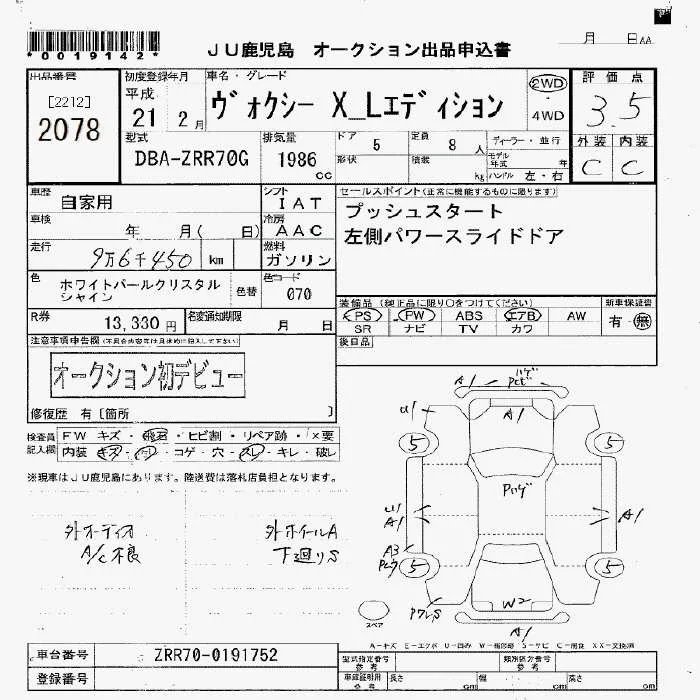 P
*0019142*
JU鹿児島 オークション出品申込書
月 日AA
出品番号
[2212]
2078
初度登録年月
平成
21 2月
車名・グレード
ヴォクシー X_Lエディション
2WD
・
4WD
評価点
3.5
外装 内装
C C
型式
DBA-ZRR70G
排気量
1986
cc
ドア
5
定員
8 人
形状
積載
kg
ディーラー・並行
モデル年式 年
ハンドル 左・右
車歴
自家用
シフト
IAT
車検
年 月( 日)
冷房
AAC
走行
9万6千450 km
燃料
ガソリン
色
ホワイトパールクリスタル
シャイン
色替
色コード
070
R券
13,330円
名変通知期限
月 日
セールスポイント(正常に機能するものに限ります)
プッシュスタート
左側パワースライドドア
装備品(純正品に限り○をつけてください)
PS PW ABS エアB AW
SR ナビ TV カワ
新車保証書
有・無
後日品
注意事項申告欄
オークション初デビュー
修復歴 有〔箇所 〕
検査員
記入欄
FW キズ・飛石・ヒビ割・リペア跡・×要
内装 キズ・ ・コゲ・穴・スレ・キレ・破レ
※現車はJU鹿児島にあります。陸送費は落札店負担となります。
外オーディオ
A/C不良
外ホイールA
下廻りS
A1
A1
U1
5
5
U1
A1
A1
A3
5
5
W2
A1
スペア
A=キズ E=エクボ U=凹み S=サビ C=腐食 XX=交換済
車台番号
ZRR70-0191752
登録番号
型式指定番号
参考
類別区分番号
参考
車庫証明用
参考
長さ cm
幅 cm
高さ cm